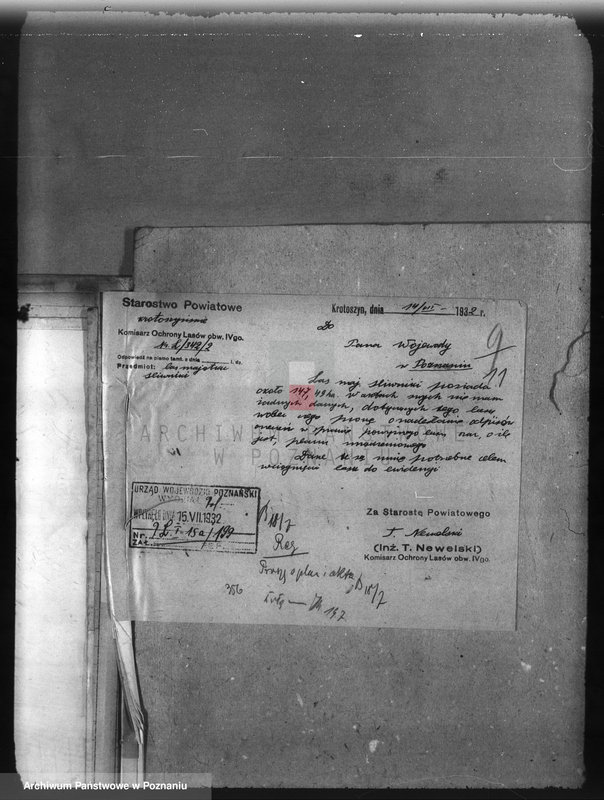 Starostwo Powiatowe
krotoszyńskie
Komisarz Ochrony Lasów obw. IVgo.
Nr. L/342/2
Odpowiedź na pismo tamt. z dnia l. dz.
Przedmiot: las majątku
Śliwniki
Krotoszyn, dnia 14/VII - 1932 r.
Do
Pana Wojewody
w Poznaniu
9
11
Las maj. Śliwniki posiada
około 147,49 ha. W aktach swych nie mam
żadnych danych, dotyczących tego lasu,
wobec czego proszę o nadesłanie odpisów
orzeczeń w sprawie powyższego lasu, oraz, o ile
jest, planu urządzenia
Dane te są mnie potrzebne celem
wciągnięcia lasu do ewidencji
ARCHIWUM
W POZNANIU
URZĄD WOJEWÓDZKI POZNAŃSKI
WPŁYNĘŁO DNIA 15.VII.1932
Nr. 9 L. I-15a/199
ZAŁ.
18/7
Reg
Za Starostę Powiatowego
T. Newelski
(Inż. T. Newelski)
Komisarz Ochrony Lasów obw. IVgo.
18/7
356
197
Archiwum Państwowe w Poznaniu